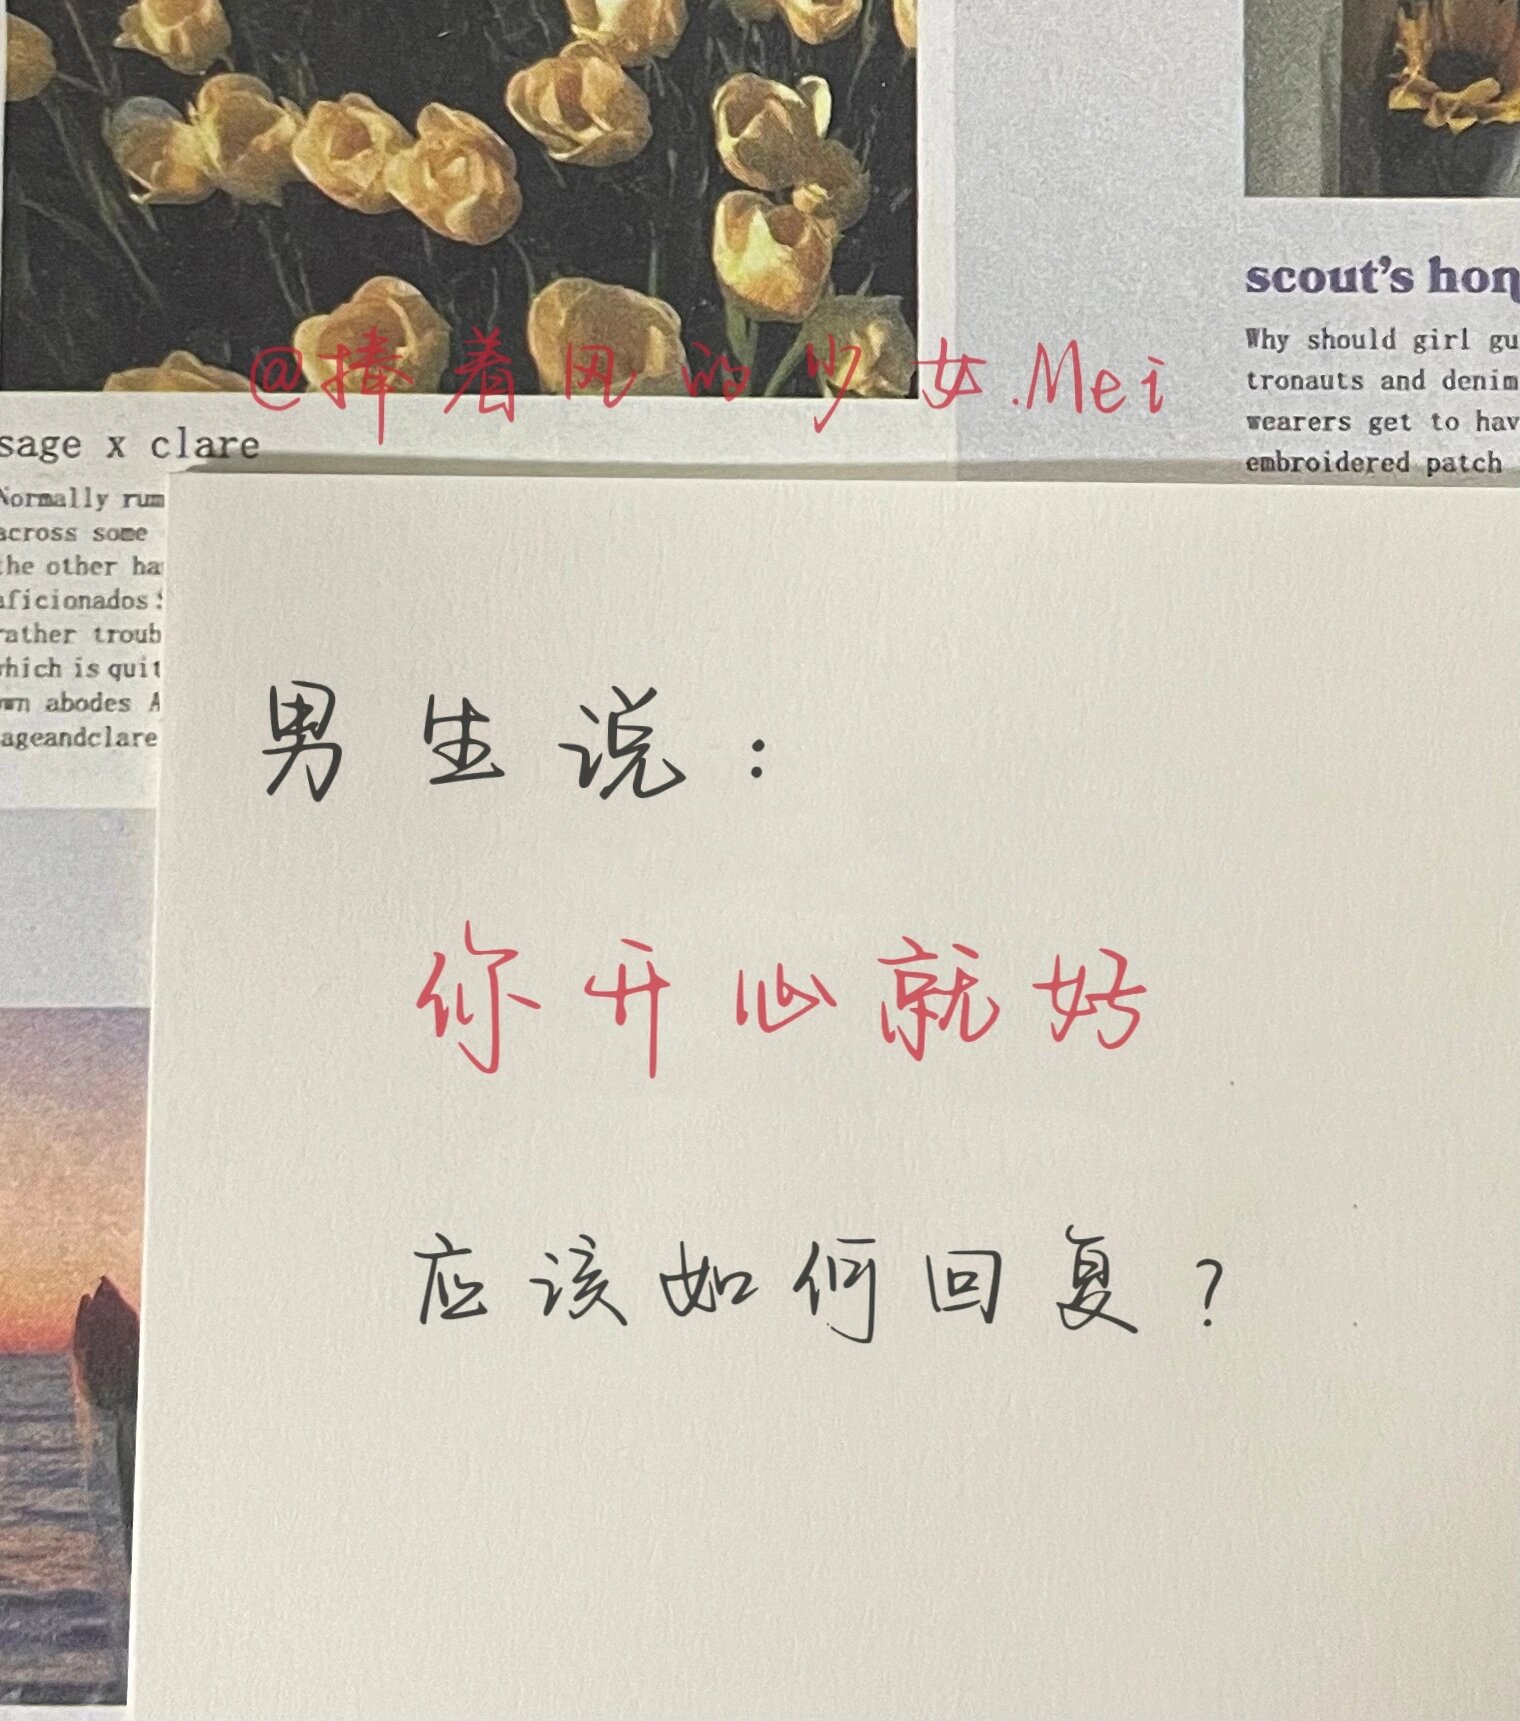 scout's hon
Why should girl gu
tronauts and denim
wearers get to hav
embroidered patch
@捧着风的少女.Mei
sage x clare
Normally rum
across some
the other ha
aficionados
rather troub
which is quit
own abodes A
ageandclare
男生说：
你开心就好
应该如何回复？